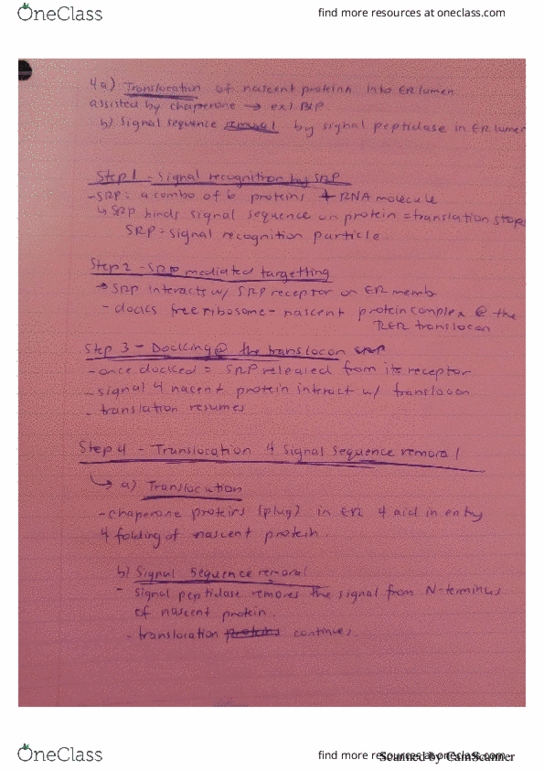 OneClass
find more resources at oneclass.com
4a) Translocation of nascent protein into ER lumen
assisted by chaperone → ex) BIP
b) Signal sequence removal by signal peptidase in ER lumen
Step 1 - Signal recognition by SRP
-SRP: a combo of 6 proteins + RNA molecule
↳ SRP binds signal sequence on protein = translation stops
SRP = signal recognition particle
Step 2 - SRP mediated targetting
→ SRP interacts w/ SRP receptor on ER memb
- docks free ribosome - nascent protein complex @ the
RER translocon
Step 3 - Docking @ the translocon
- once docked = SRP released from its receptor
- signal 4 nacent protein interact w/ translocon
- translation resumes
Step 4 - Translocation 4 Signal Sequence removal
↳ a) Translocation
- chaperone proteins (plug) in ER 4 aid in entry
4 folding of nascent protein.
b) Signal Sequence removal
- signal peptidase removes the signal from N-terminus
of nascent protein.
- translocation proteins continues.
OneClass
find more resources at oneclass.com
Scanned by CamScanner